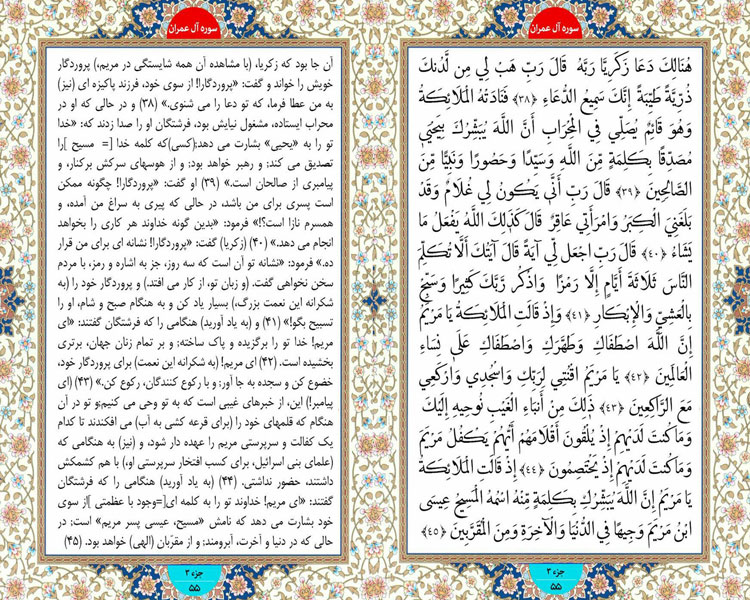 سوره آل عمران
هُنَالِكَ دَعَا زَكَرِيَّا رَبَّهُ قَالَ رَبِّ هَبْ لِي مِن لَّدُنكَ
ذُرِّيَّةً طَيِّبَةً إِنَّكَ سَمِيعُ الدُّعَاءِ ﴿٣٨﴾ فَنَادَتْهُ الْمَلَائِكَةُ
وَهُوَ قَائِمٌ يُصَلِّي فِي الْمِحْرَابِ أَنَّ اللَّهَ يُبَشِّرُكَ بِيَحْيَى
مُصَدِّقًا بِكَلِمَةٍ مِّنَ اللَّهِ وَسَيِّدًا وَحَصُورًا وَنَبِيًّا مِّنَ
الصَّالِحِينَ ﴿٣٩﴾ قَالَ رَبِّ أَنَّى يَكُونُ لِي غُلَامٌ وَقَدْ
بَلَغَنِيَ الْكِبَرُ وَامْرَأَتِي عَاقِرٌ قَالَ كَذَلِكَ اللَّهُ يَفْعَلُ مَا
يَشَاءُ ﴿٤٠﴾ قَالَ رَبِّ اجْعَل لِّي آيَةً قَالَ آيَتُكَ أَلَّا تُكَلِّمَ
النَّاسَ ثَلَاثَةَ أَيَّامٍ إِلَّا رَمْزًا وَاذْكُر رَّبَّكَ كَثِيرًا وَسَبِّحْ
بِالْعَشِيِّ وَالْإِبْكَارِ ﴿٤١﴾ وَإِذْ قَالَتِ الْمَلَائِكَةُ يَا مَرْيَمُ
إِنَّ اللَّهَ اصْطَفَاكِ وَطَهَّرَكِ وَاصْطَفَاكِ عَلَى نِسَاءِ
الْعَالَمِينَ ﴿٤٢﴾ يَا مَرْيَمُ اقْنُتِي لِرَبِّكِ وَاسْجُدِي وَارْكَعِي
مَعَ الرَّاكِعِينَ ﴿٤٣﴾ ذَلِكَ مِنْ أَنبَاءِ الْغَيْبِ نُوحِيهِ إِلَيْكَ
وَمَا كُنتَ لَدَيْهِمْ إِذْ يُلْقُونَ أَقْلَامَهُمْ أَيُّهُمْ يَكْفُلُ مَرْيَمَ
وَمَا كُنتَ لَدَيْهِمْ إِذْ يَخْتَصِمُونَ ﴿٤٤﴾ إِذْ قَالَتِ الْمَلَائِكَةُ
يَا مَرْيَمُ إِنَّ اللَّهَ يُبَشِّرُكِ بِكَلِمَةٍ مِّنْهُ اسْمُهُ الْمَسِيحُ عِيسَى
ابْنُ مَرْيَمَ وَجِيهًا فِي الدُّنْيَا وَالْآخِرَةِ وَمِنَ الْمُقَرَّبِينَ ﴿٤٥﴾
جزء ۳
۵۵
سوره آل عمران
آن جا بود که زکریا، (با مشاهده آن همه شایستگی در مریم،) پروردگار
خویش را خواند و گفت: «پروردگارا! از سوی خود، فرزند پاکیزه ای (نیز)
به من عطا فرما، که تو دعا را می شنوی.» (۳۸) و در حالی که او در
محراب ایستاده، مشغول نیایش بود، فرشتگان او را صدا زدند که: «خدا
تو را به «یحیی» بشارت می دهد؛(کسی)که کلمه خدا [= مسیح ]را
تصدیق می کند؛ و رهبر خواهد بود؛ و از هوسهای سرکش برکنار، و
پیامبری از صالحان است.» (۳۹) او گفت: «پروردگارا! چگونه ممکن
است پسری برای من باشد، در حالی که پیری به سراغ من آمده، و
همسرم نازا است؟!» فرمود: «بدین گونه خداوند هر کاری را بخواهد
انجام می دهد.» (۴۰) (زکریا) گفت: «پروردگارا! نشانه ای برای من قرار
ده.» فرمود: «نشانه تو آن است که سه روز، جز به اشاره و رمز، با مردم
سخن نخواهی گفت. (و زبان تو، از کار می افتد.) و پروردگار خود را (به
شکرانه این نعمت بزرگ،) بسیار یاد کن و به هنگام صبح و شام، او را
تسبیح بگو!» (۴۱) و (به یاد آورید) هنگامی را که فرشتگان گفتند: «ای
مریم! خدا تو را برگزیده و پاک ساخته؛ و بر تمام زنان جهان، برتری
بخشیده است. (۴۲) ای مریم! (به شکرانه این نعمت) برای پروردگار خود،
خضوع کن و سجده به جا آور; و با رکوع کنندگان، رکوع کن.» (۴۳) (ای
پیامبر!) این، از خبرهای غیبی است که به تو وحی می کنیم;و تو در آن
هنگام که قلمهای خود را (برای قرعه کشی به آب) می افکندند تا کدام
یک کفالت و سرپرستی مریم را عهده دار شود، و (نیز) به هنگامی که
(علمای بنی اسرائیل، برای کسب افتخار سرپرستی او،) با هم کشمکش
داشتند، حضور نداشتی. (۴۴) (به یاد آورید) هنگامی را که فرشتگان
گفتند: «ای مریم! خداوند تو را به کلمه ای[=وجود با عظمتی ]از سوی
خود بشارت می دهد که نامش «مسیح، عیسی پسر مریم» است; در
حالی که در دنیا و آخرت، آبرومند; و از مقرّبان (الهی) خواهد بود. (۴۵)
جزء ۳
۵۵